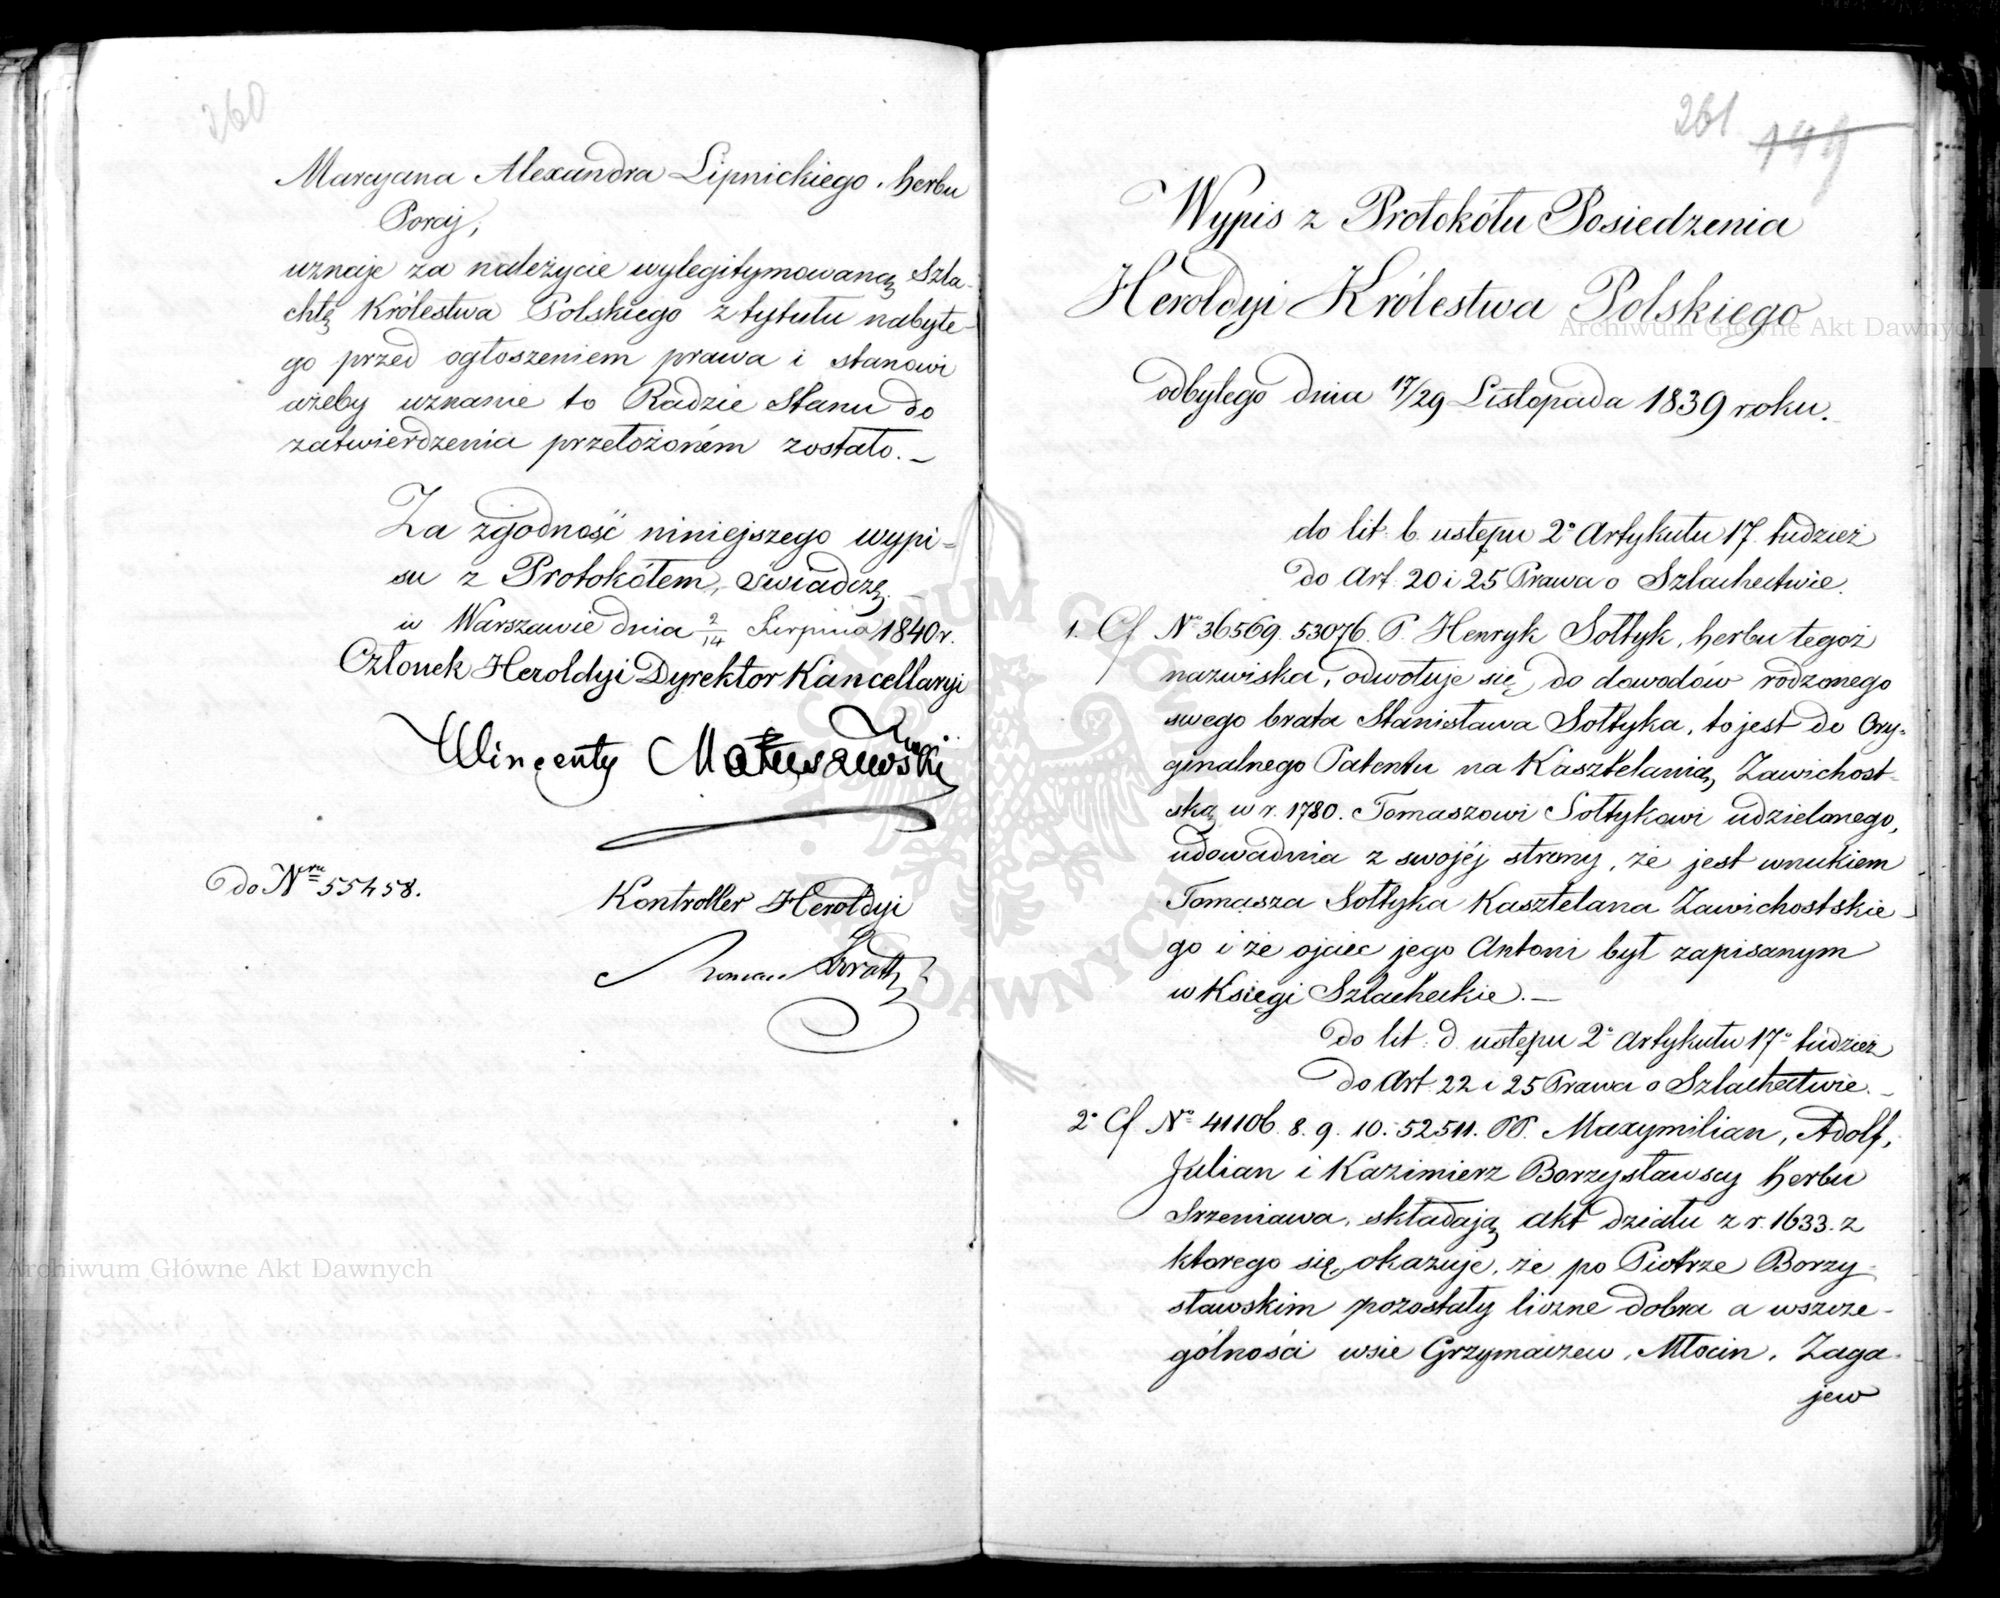 260
Marcyana Alexandra Lipnickiego, herbu
Poraj,
uznaje za należycie wylegitymowaną Szla-
chtę Królestwa Polskiego z tytułu nabyte-
go przed ogłoszeniem prawa i stanowi
ażeby uznanie to Radzie Stanu do
zatwierdzenia przełożoném zostało.
Za zgodność niniejszego wypi=
su z Protokółem, świadczę.
w Warszawie dnia 2/14 Sierpnia 1840 r.
Członek Heroldyi Dyrektor Kancellaryi
Wincenty Matuszewski
do Nru 55458.
Kontroller Heroldyi
Roman
261
149
Wypis z Protokółu Posiedzenia
Heroldyi Królestwa Polskiego
odbytego dnia 17/29 Listopada 1839 roku.
do lit: b. ustępu 2o Artykułu 17. tudzież
do Art. 20 i 25 Prawa o Szlachectwie.
1. Cf No 36569. 53076. P. Henryk Sołtyk, herbu tegoż
nazwiska, odwołuje się do dowodów rodzonego
swego brata Stanisława Sołtyka, to jest do Ory-
ginalnego Patentu na Kasztelanią Zawichost-
ską w r. 1780. Tomaszowi Sołtykowi udzielonego,
udowadnia z swojéj strony, że jest wnukiem
Tomasza Sołtyka Kasztelana Zawichostskie-
go i że ojciec jego Antoni był zapisanym
w Księgi Szlacheckie.
do lit: d. ustępu 2o Artykułu 17o tudzież
do Art. 22 i 25 Prawa o Szlachectwie.
2o Cf No 41106. 8. 9. 10. 52511. PP. Maxymilian, Adolf,
Julian i Kazimierz Borzysławscy herbu
Srzeniawa, składają akt działu z r. 1633. z
ktorego się okazuje, że po Piotrze Borzy-
sławskim pozostały liczne dobra a wszcze-
gólności wsie Grzymaczew, Młocin, Zaga-
jew
Archiwum Główne Akt Dawnych
Archiwum Główne Akt Dawnych
ARCHIWUM GŁÓWNE AKT DAWNYCH